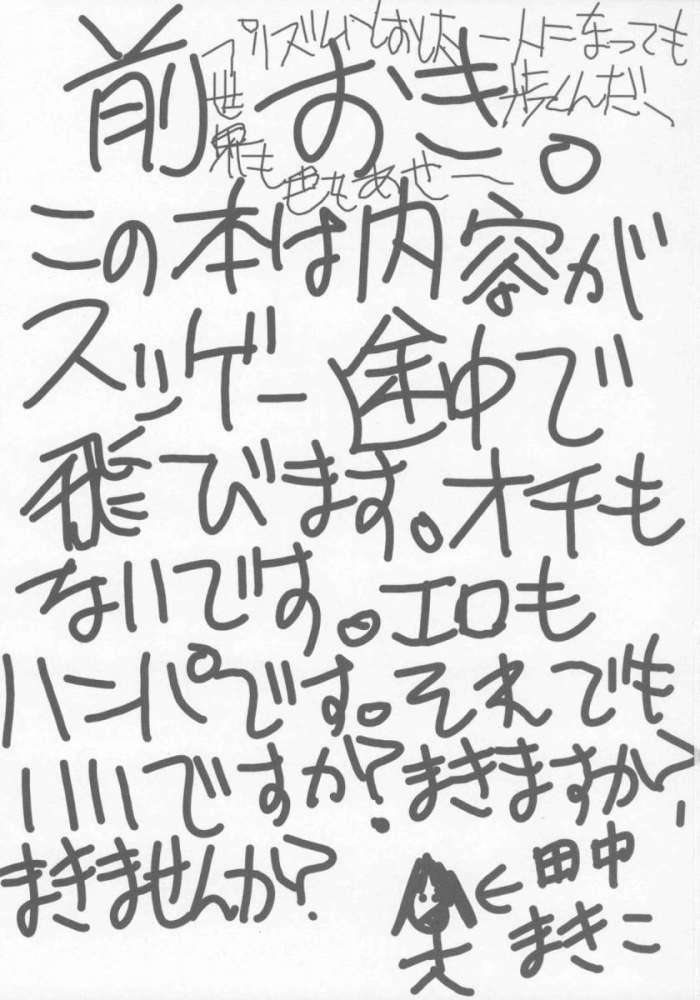 前おき。
この本は内容が
スッゲー途中で
飛びます。オチも
ないです。エロも
ハンパです。それでも
いいですか?まきますか?
まきませんか?
←田中
まきこ
一人になっても
歩くんだ、
世界も